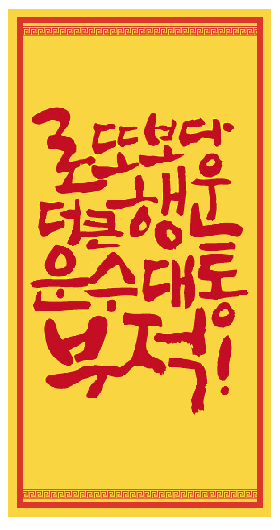 로또보다
더큰행운
운수대통
부적!